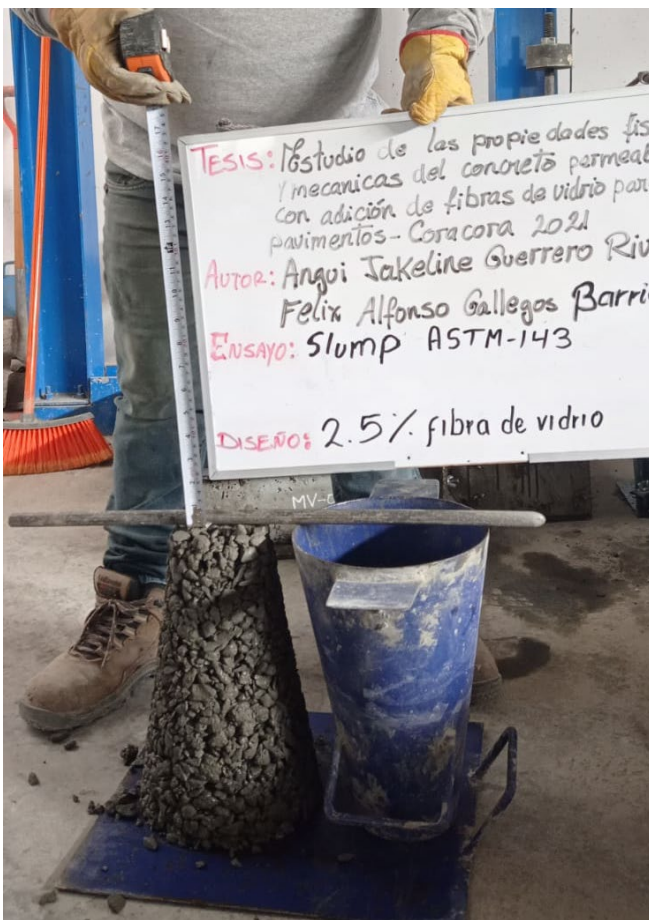 TESIS: Estudio de las propiedades fis
y mecanicas del concreto permeab
con adición de fibras de vidrio par
pavimentos - Coracora 2021
AUTOR: Angui Jakeline Guerrero Riv
Felix Alfonso Gallegos Barri
ENSAYO: Slump ASTM-143
DISEÑO: 2.5% fibra de vidrio
MV-0